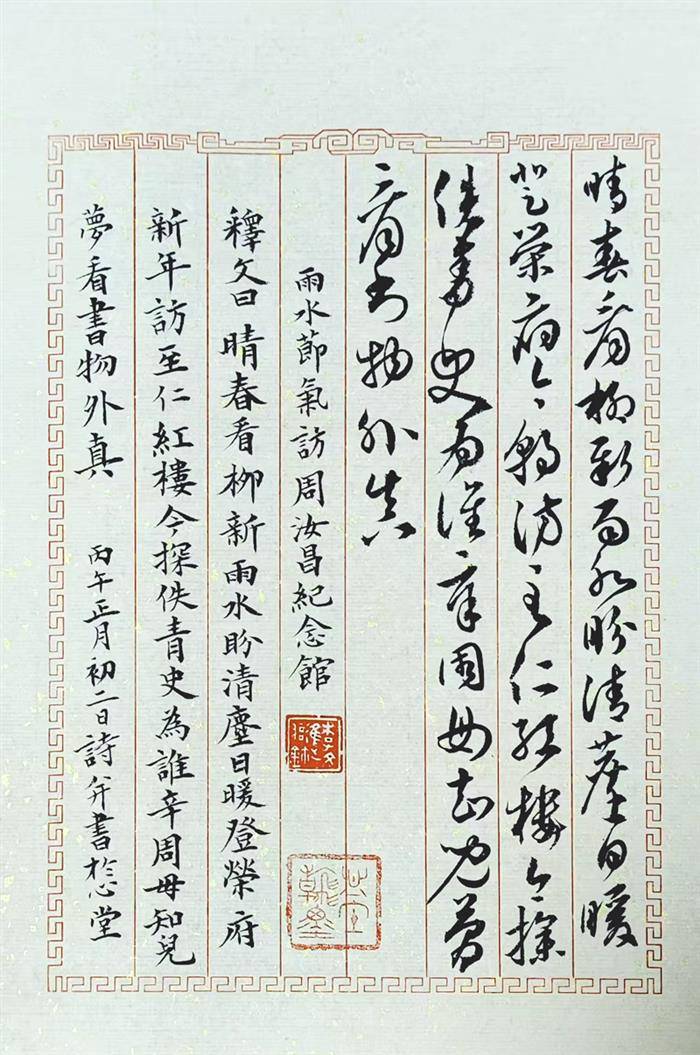 晴春看柳新雨水盼清塵日暖
登榮府今朝訪至仁紅樓今探
佚青史為誰辛周母知兒夢
看書物外真
雨水節氣訪周汝昌紀念館
釋文曰 晴春看柳新雨水盼清塵日暖登榮府
新年訪至仁紅樓今探佚青史為誰辛周毋知兒
夢看書物外真 丙午正月初二日詩并書於心堂